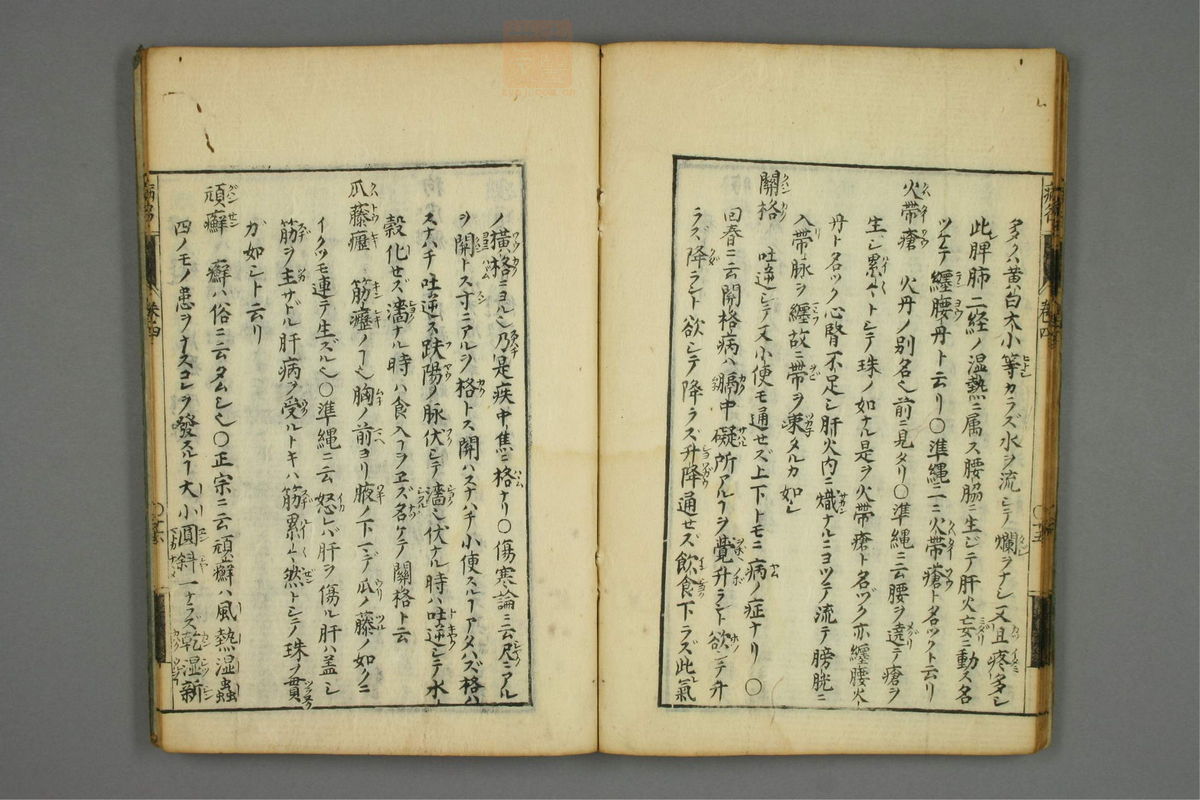 多クハ黄白大小等カラズ水ヲ流シテ爛ヲナシ又且疼多シ
此脾肺二経ノ湿熱ニ属ス腰脇ニ生ジテ肝火妄ニ動ス名
ツケテ纏腰丹ト云リ〇準縄ニニ火帯瘡ト名ツクト云リ
火帯瘡 火丹ノ別名也前ニ見タリ〇準縄ニ云腰ヲ遶テ瘡ヲ
生シ累々トシテ珠ノ如ナル是ヲ火帯瘡ト名ヅク亦纏腰火
丹ト名ツク心腎不足シ肝火内ニ熾ナルニヨツテ流テ膀胱ニ
入帯脉ヲ纏故ニ帯ヲ束タルカ如シ
關格 吐逆シテ又小便モ通セズ上下トモニ病ノ症ナリ〇
回春ニ云関格病ハ膈中礙所アルヿヲ覺升ラント欲シテ升
ラズ降ラント欲シテ降ラズ升降通セズ飲食下ラズ此氣
ノ横格ニヨル也乃是疾中焦ニ格ナリ〇傷寒論ニ云尺ニアル
ヲ関トス寸ニアルヲ格トス関ハスナハチ小便スルヿアタハズ格ハ
スナハチ吐逆ス趺陽ノ脉伏シテ濇シ伏ナル時ハ吐逆シテ水
穀化せズ濇ナル時ハ食入ヿヲヱズ名ケテ關格ト云
爪藤癧 筋癧ノヿ也胸ノ前ヨリ腋ノ下マデ瓜ノ藤ノ如クニ
イクツモ連テ生ズル也〇準縄ニ云怒レバ肝ヲ傷ル肝ハ盖シ
筋ヲ主サドル肝病ヲ受ルトキハ筋累々然トシテ珠ヲ貫
ガ如シト云リ
頑癬 癬ハ俗ニ云タムシ也〇正宗ニ云頑癬ハ風熱湿蟲
四ノモノ患ヲナスコレヲ發スルヿ大小圓斜一ナラズ乾湿新
卷四
卷四